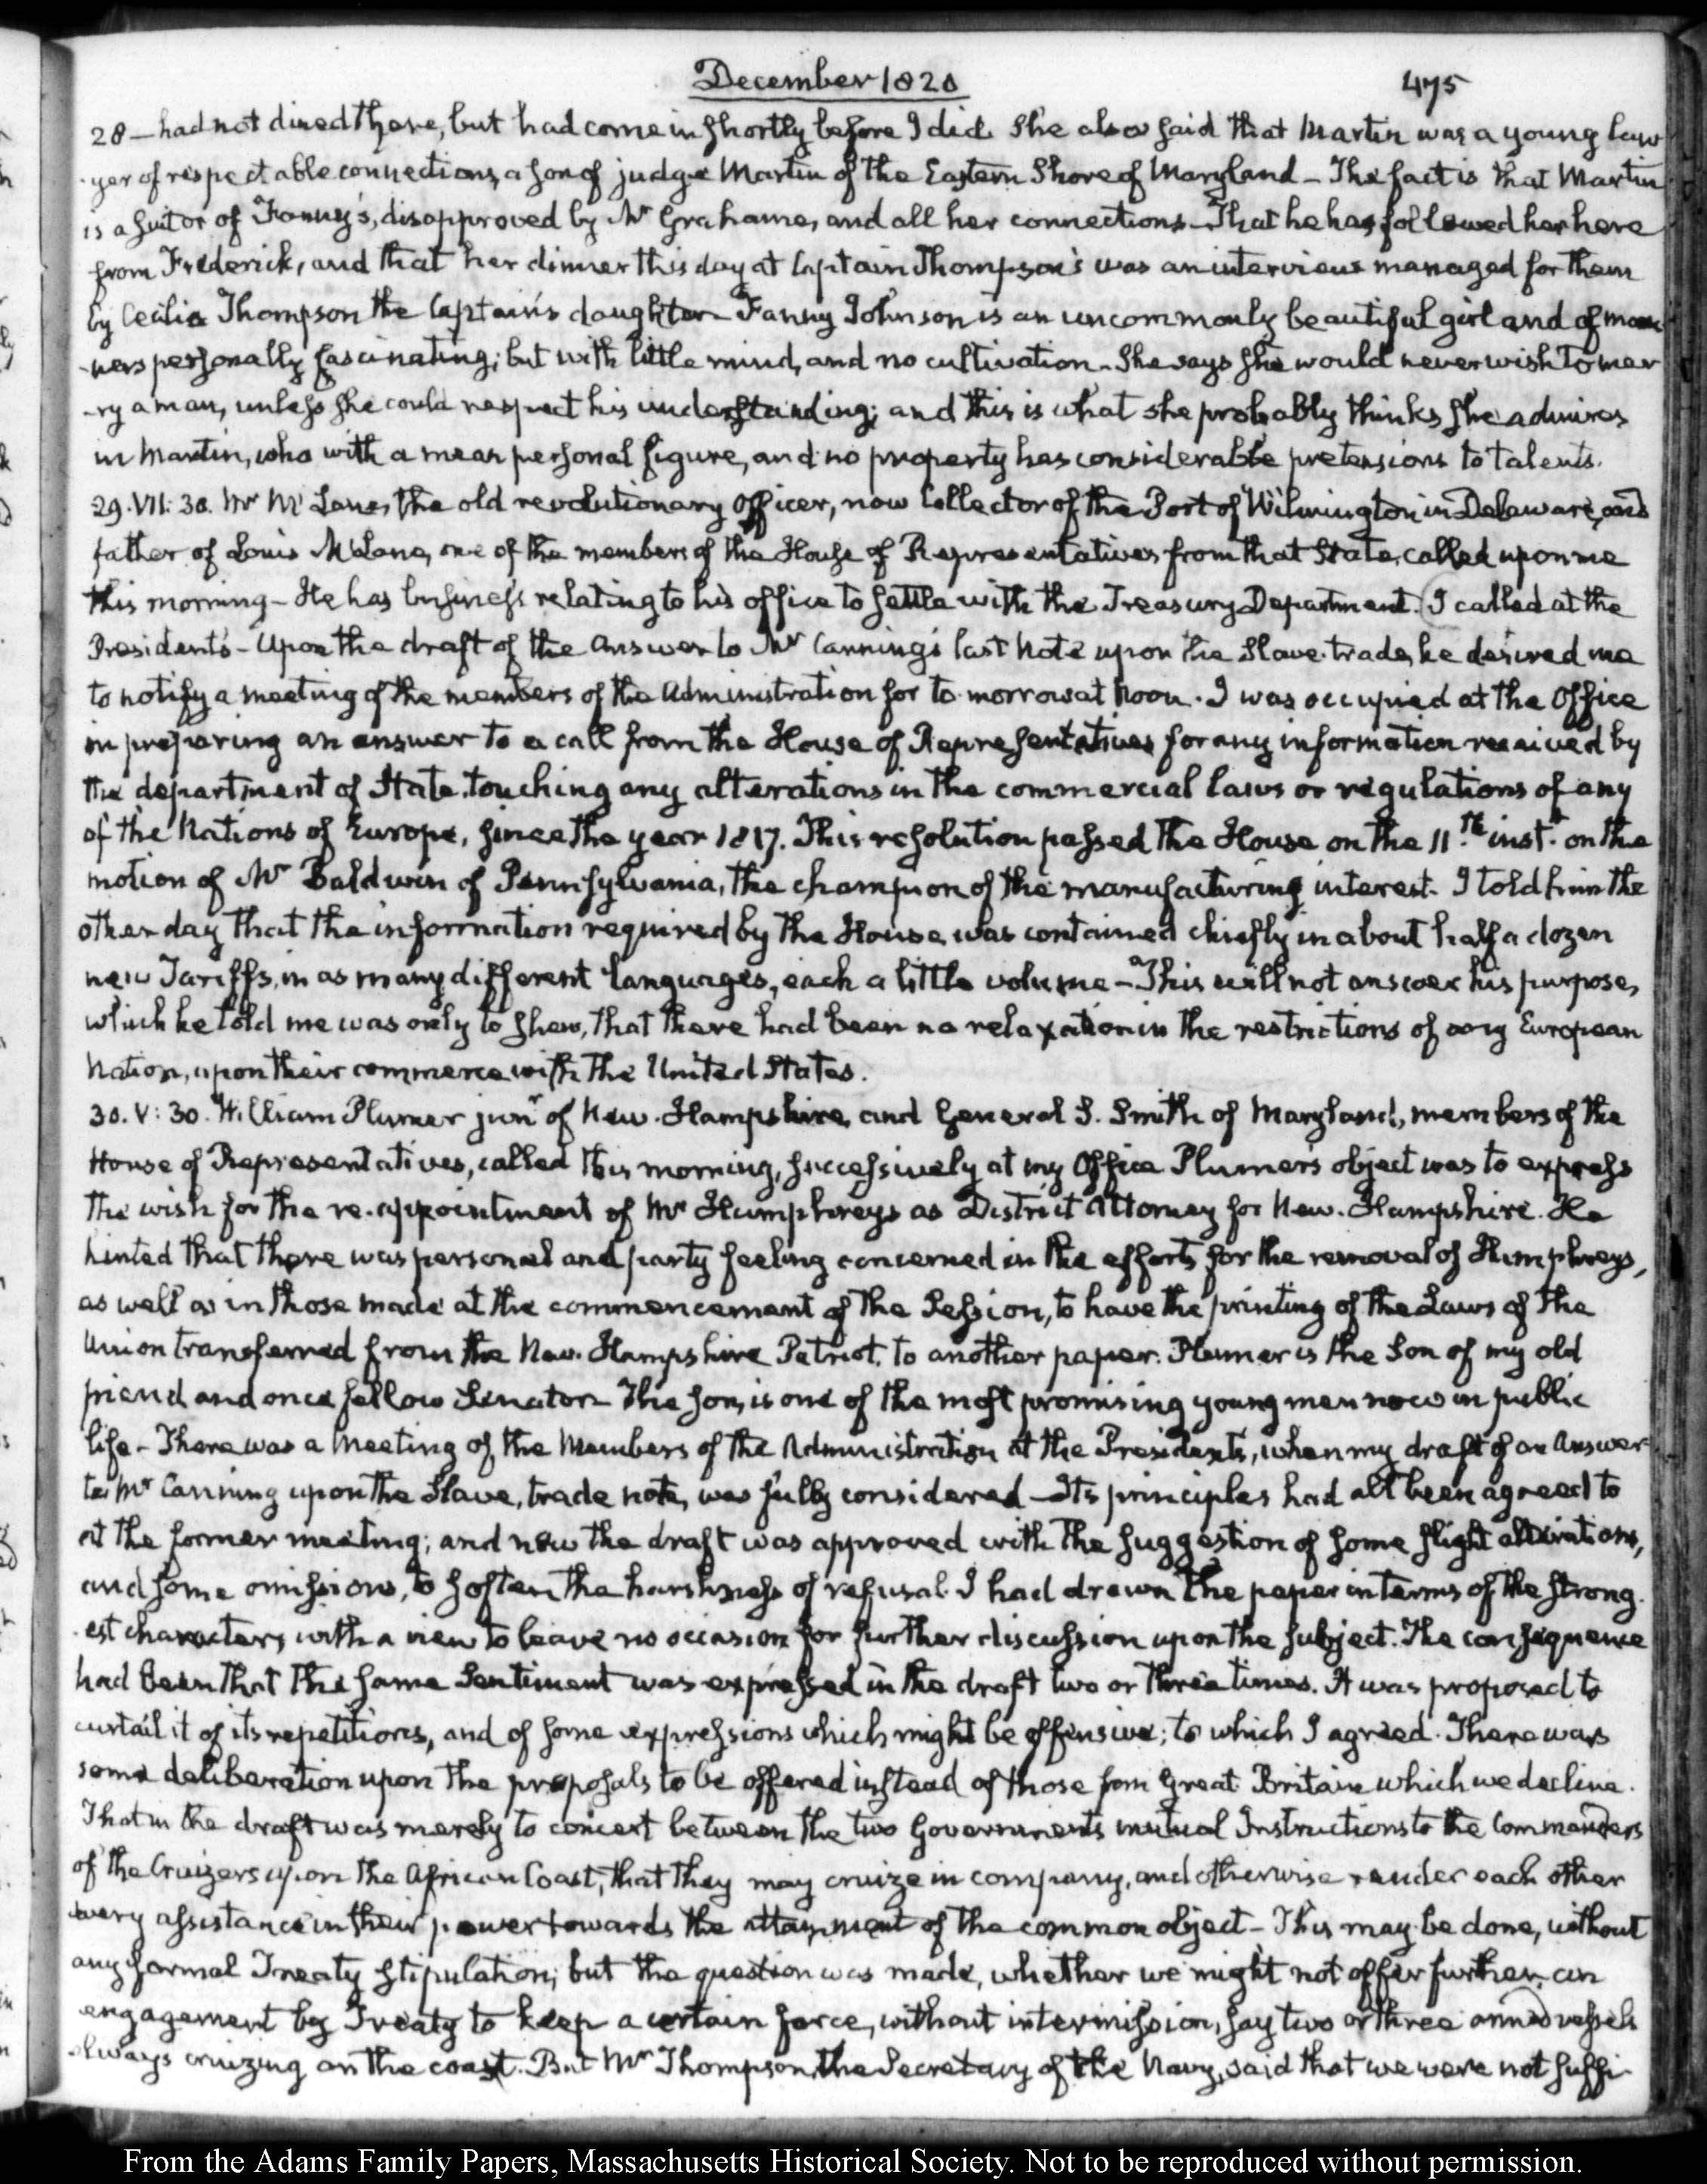 December 1820
475
28 — had not dined there, but had come in shortly before I did. She also said that Martin was a young law
-yer of respectable connections, a son of judge Martin of the Eastern Shore of Maryland — The fact is that Martin
is a suitor of Fanny's, disapproved by Mr Grahame, and all her connections — That he has followed her here
from Frederick, and that her dinner this day at Captain Thompson's was an interview managed for them
by Cecilia Thompson the Captain's daughter — Fanny Johnson is an uncommonly beautiful girl and of man
-ners personally fascinating; but with little mind, and no cultivation — She says she would never wish to mar
-ry a man, unless she could respect his understanding; and this is what she probably thinks she admires
in Martin, who with a mean personal figure, and no property has considerable pretensions to talents.
29. VII: 30. Mr McLane, the old revolutionary Officer, now Collector of the Port of Wilmington in Delaware, and
father of Louis McLane, one of the members of the House of Representatives from that State, called upon me
this morning — He has business relating to his office to settle with the Treasury Department. I called at the
President's — Upon the draft of the Answer to Mr Canning's last Note upon the Slave-trade, he desired me
to notify a meeting of the members of the Administration for to-morrow at Noon. I was occupied at the Office
in preparing an answer to a call from the House of Representatives for any information received by
the department of State, touching any alterations in the commercial laws or regulations of any
of the Nations of Europe, since the year 1817. This resolution passed the House on the 11.th inst.t on the
motion of Mr Baldwin of Pennsylvania, the champion of the manufacturing interest. I told him the
other day that the information required by the House, was contained chiefly in about half a dozen
new Tariffs, in as many different languages, each a little volume — This will not answer his purpose,
which he told me was only to shew, that there had been no relaxation in the restrictions of any European
Nation, upon their commerce with the United States.
30. V: 30. William Plumer junr of New-Hampshire, and General S. Smith of Maryland, members of the
House of Representatives, called this morning, successively at my Office Plumer's object was to express
the wish for the re-appointment of Mr Humphreys as District Attorney for New-Hampshire. He
hinted that there was personal and party feeling concerned in the efforts for the removal of Humphreys,
as well as in those made at the commencement of the Session, to have the printing of the Laws of the
Union transferred from the New-Hampshire Patriot, to another paper. Plumer is the Son of my old
friend and once fellow Senator — The son, is one of the most promising young men now in public
life — There was a Meeting of the Members of the Administration at the President's, when my draft of an Answer
to Mr Canning upon the Slave-trade note, was fully considered — Its principles had all been agreed to
at the former meeting; and now the draft was approved with the suggestion of some slight alterations,
and some omissions, to soften the harshness of refusal. I had drawn the paper in terms of the strong-
-est character, with a view to leave no occasion for further discussion upon the subject. The consequence
had been that the same Sentiment was expressed in the draft two or three times. It was proposed to
curtail it of its repetitions, and of some expressions which might be offensive; to which I agreed. There was
some deliberation upon the proposals to be offered instead of those from Great Britain which we decline.
That in the draft was merely to concert between the two Governments mutual Instructions to the Commanders
of the Cruizers upon the African Coast, that they may cruize in company, and otherwise render each other
every assistance in their power towards the attainment of the common object — This may be done, without
any formal Treaty stipulation; but the question was made, whether we might not offer further, an
engagement by Treaty to keep a certain force, without intermission, say two or three armed vessels
always cruizing on the coast. But Mr Thompson, the Secretary of the Navy, said that we were not suffi-
From the Adams Family Papers, Massachusetts Historical Society. Not to be reproduced without permission.